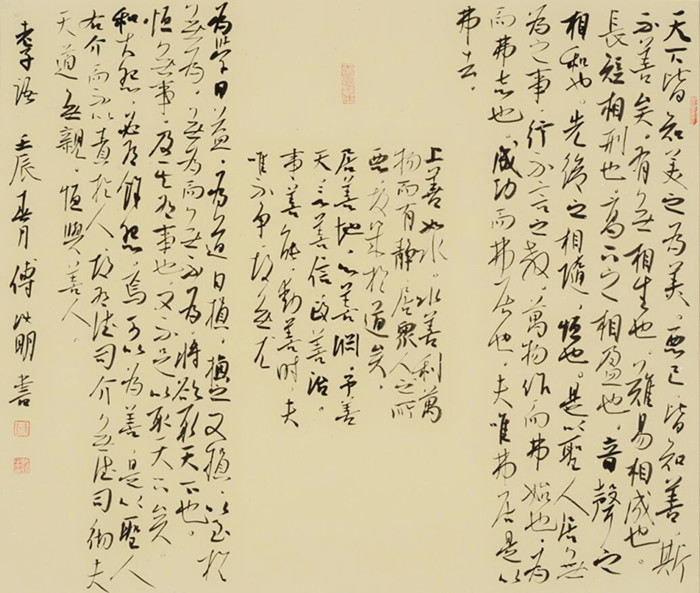 天下皆知美之為美。惡已。皆知善。斯
不善矣。有無相生也。難易相成也。
長短相刑也。高下之相盈也。音聲之
相和也。先後之相隨。恒也。是以聖人居無
為之事。行不言之教。萬物作而弗始也。為
而弗志也。成功而弗居也。夫唯弗居是以
弗去。
上善如水。水善利萬
物而有静。居眾人之所
惡。故幾於道矣。
居善地。心善渊。予善
天。言善信。政善治。
事善能。動善時。夫
唯不争。故無尤
為學日益。為道日損。損之又損。以至於
無為。無為而無不為。將欲取天下也。
恒無事。及其有事也。又不足以取天下矣。
和大怨。必有餘怨。焉可以為善。是以聖人
右介而不以責於人。故有德司介。無德司徹。夫
天道無親。恒與善人。
老子語 壬辰春月 傅 明書